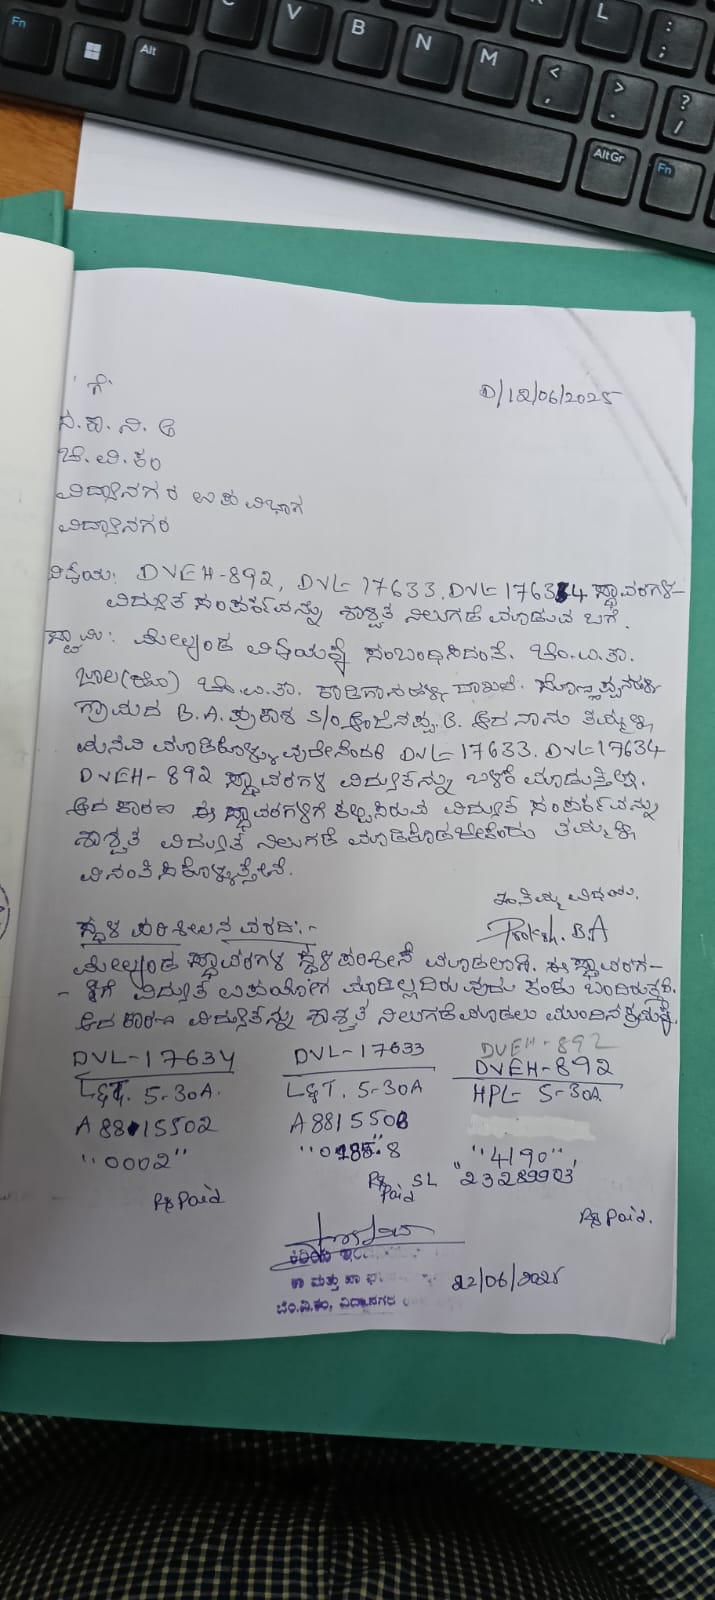 ಗೆ
D/12/06/2025
ಸ.ಕಾ.ನಿ.ಅ
ಬೆ.ವಿ.ಕಂ
ವಿದ್ಯಾನಗರ ಉಪ ವಿಭಾಗ
ವಿದ್ಯಾನಗರ
ವಿಷಯ: DVEH-892, DVL-17633. DVL-17634 ಸ್ಥಾವರಗಳ-
ವಿದ್ಯುತ ಸಂಪರ್ಕವನ್ನು ಶಾಶ್ವತ ನಿಲುಗಡೆ ಮಾಡುವ ಬಗೆ.
ಸ್ವಾಮಿ: ಮೇಲ್ಕಂಡ ವಿಷಯಕ್ಕೆ ಸಂಬಂಧಿಸಿದಂತೆ. ಬೆಂ.ಉ.ತಾ.
ಜಾಲ(ಹೋ) ಬೆಂ.ಉ.ತಾ. ದಾಖಲೆ.
ಗ್ರಾಮದ B.A. ಪ್ರಕಾಶ S/o ಆಂಜಿನಪ್ಪ.B. ಆದ ನಾನು ತಮ್ಮಲ್ಲಿ
ಮನವಿ ಮಾಡಿಕೊಳ್ಳುವುದೇನೆಂದರೆ DVL-17633. DVL-17634
DVEH-892 ಸ್ಥಾವರಗಳ ವಿದ್ಯುತನ್ನು ಬಳಕೆ ಮಾಡುತ್ತಿಲ್ಲ.
ಆದ ಕಾರಣ ಈ ಸ್ಥಾವರಗಳಿಗೆ ಕಲ್ಪಿಸಿರುವ ವಿದ್ಯುತ ಸಂಪರ್ಕವನ್ನು
ಶಾಶ್ವತ ವಿದ್ಯುತ ನಿಲುಗಡೆ ಮಾಡಿಕೊಡಬೇಕೆಂದು ತಮ್ಮಲ್ಲಿ
ವಿನಂತಿಸಿಕೊಳ್ಳುತ್ತೇನೆ.
ಇಂತಿ ವಿಧೇಯ.
Prakash. B.A
ಸ್ಥಳ ಪರಿಶೀಲನ ವರದಿ:-
ಮೇಲ್ಕಂಡ ಸ್ಥಾವರಗಳ ಸ್ಥಳ ಪರಿಶೀಲನೆ ಮಾಡಲಾಗಿ. ಈ ಸ್ಥಾವರಗ-
-ಳಿಗೆ ವಿದ್ಯುತ ಉಪಯೋಗ ಮಾಡಿಲ್ಲದಿರುವುದು ಕಂಡು ಬಂದಿರುತ್ತದೆ.
ಆದ ಕಾರಣ ವಿದ್ಯುತನ್ನು ಶಾಶ್ವತ ನಿಲುಗಡೆ ಮಾಡಲು ಮುಂದಿನ ಕ್ರಮಕ್ಕೆ.
DVEH-892
DVL-17634 DVL-17633 DVEH-892
L&T. 5-30A. L&T. 5-30A HPL 5-30A
A8815502 A8815508
"0002" "4190"
SL "23289903"
Rs Paid Rs Paid Rs Paid.
22/06/2025
ಬೆಂ.ವಿ.ಕಂ, ವಿದ್ಯಾನಗರ